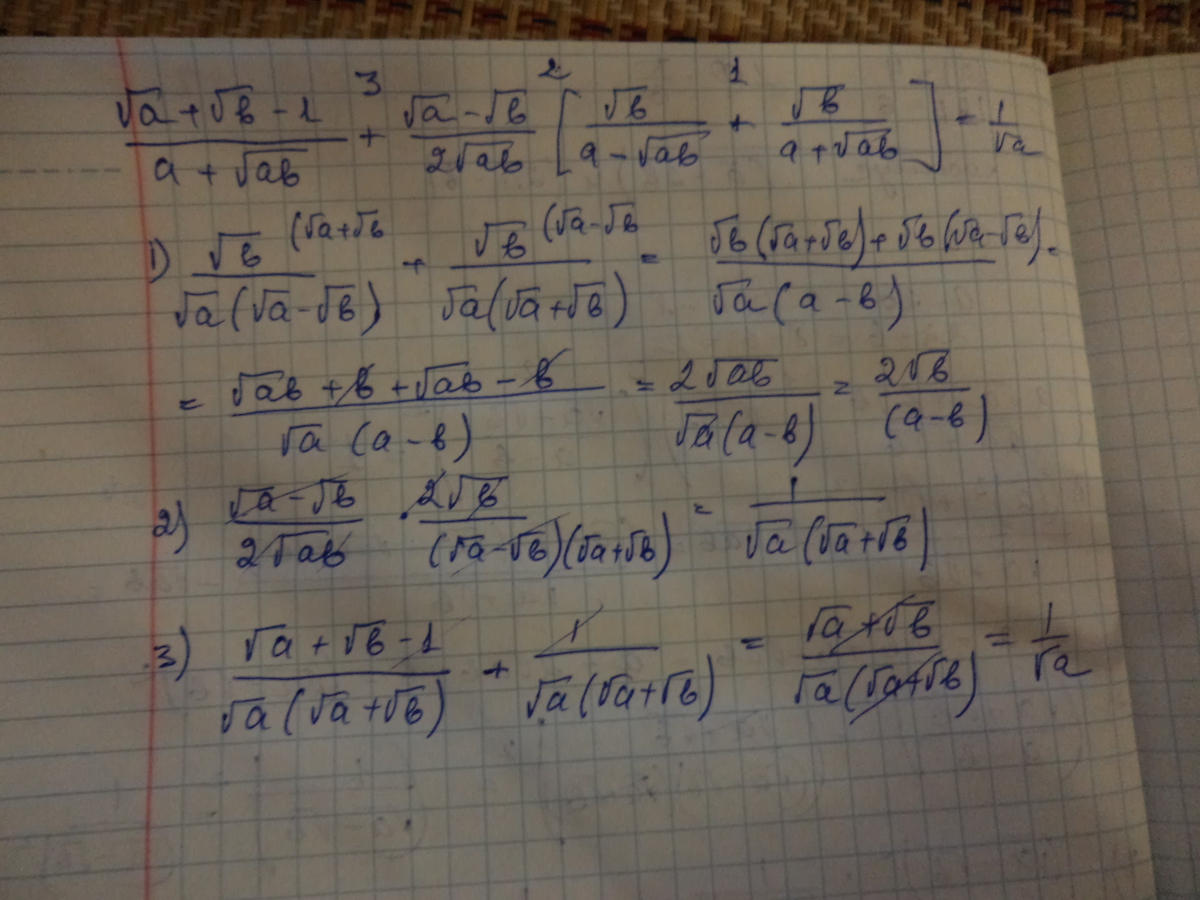 (√a + √b − 1)/(a + √ab) +³ (√a − √b)/(2√ab) ² [ √b/(a − √ab) +¹ √b/(a + √ab) ] = 1/√a
1) √b (√a+√b / √a(√a−√b) + √b (√a−√b / √a(√a+√b) = (√b(√a+√b) + √b(√a−√b))/(√a(a−b)) =
= (√ab + b + √ab − b)/(√a (a−b)) = 2√ab/(√a(a−b)) = 2√b/(a−b)
2) (√a − √b)/(2√ab) · 2√b/((√a−√b)(√a+√b)) = 1/(√a(√a+√b))
3) (√a + √b − 1)/(√a(√a+√b)) + 1/(√a(√a+√b)) = (√a+√b)/(√a(√a+√b)) = 1/√a